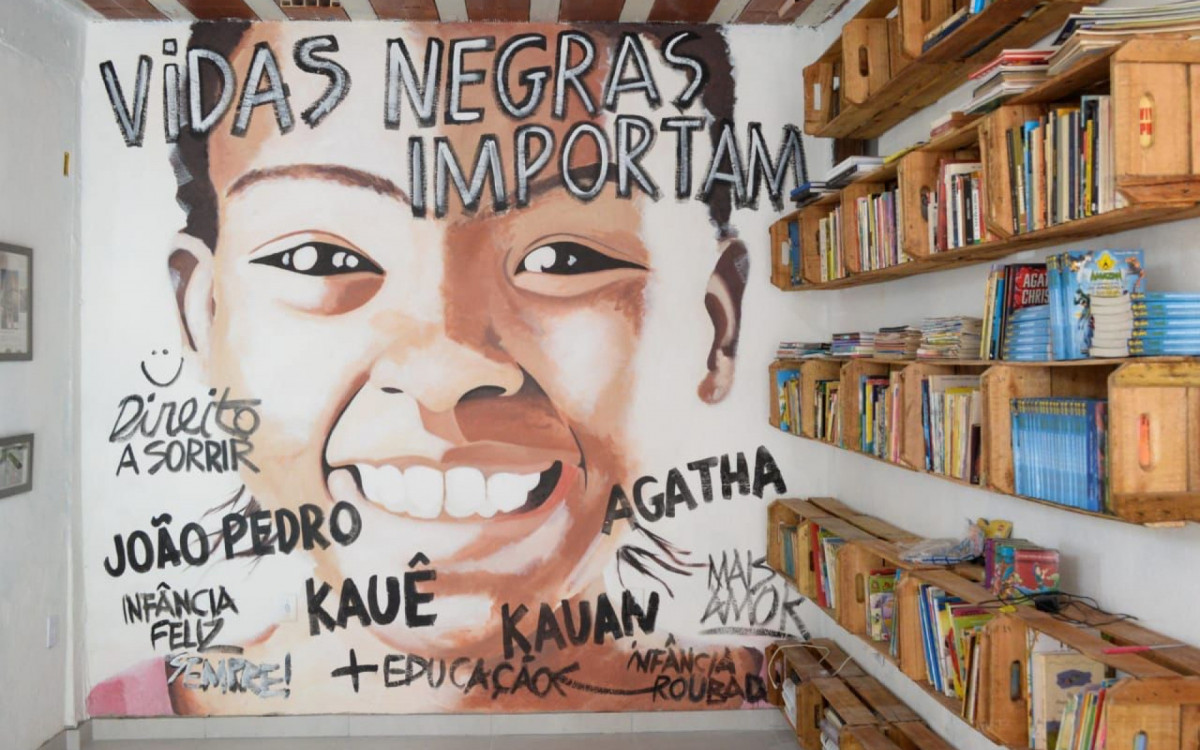 VIDAS NEGRAS
IMPORTAM
Direito
A SORRIR
AGATHA
JOÃO PEDRO
KAUÊ
KAUAN
MAIS
AMOR
INFÂNCIA
FELIZ
SEMPRE!
+ EDUCAÇÃO
INFÂNCIA
ROUBADA
AGATHA
CHRIS